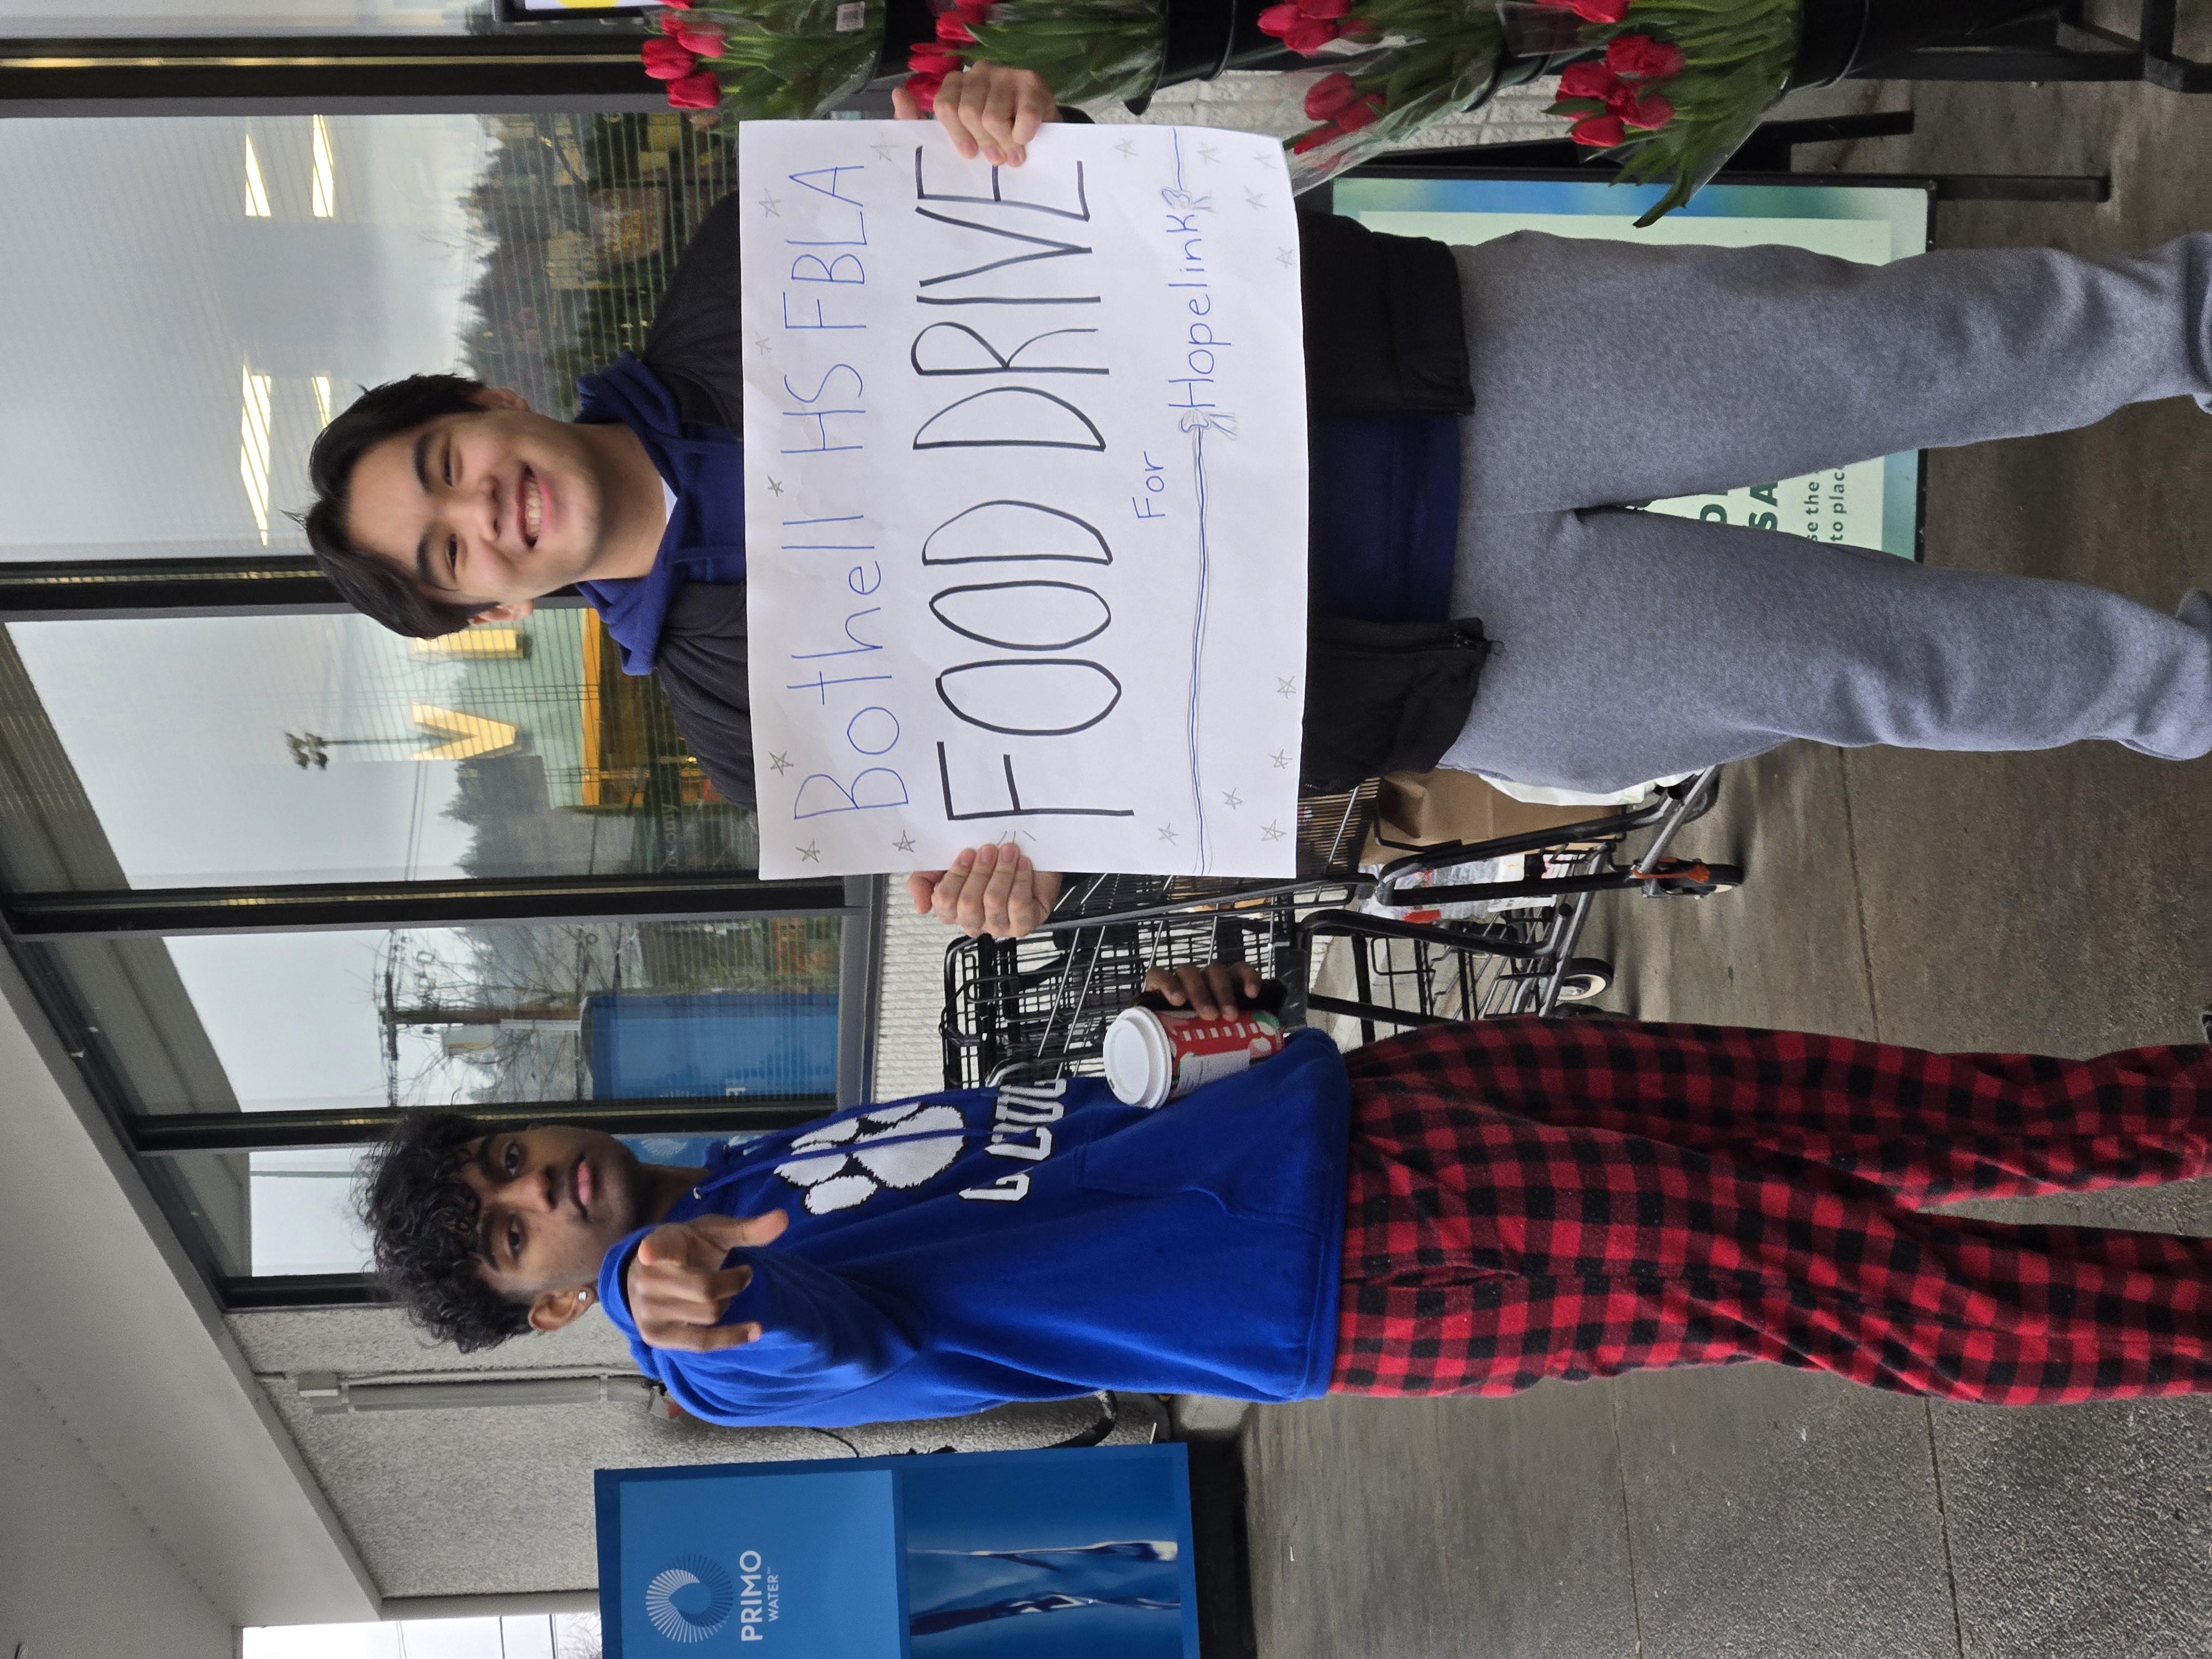 PRIMO
WATER™
VI
G COUG
Bothell HS FBLA
FOOD DRIVE
For
Hopelink
SA
se the
to plac